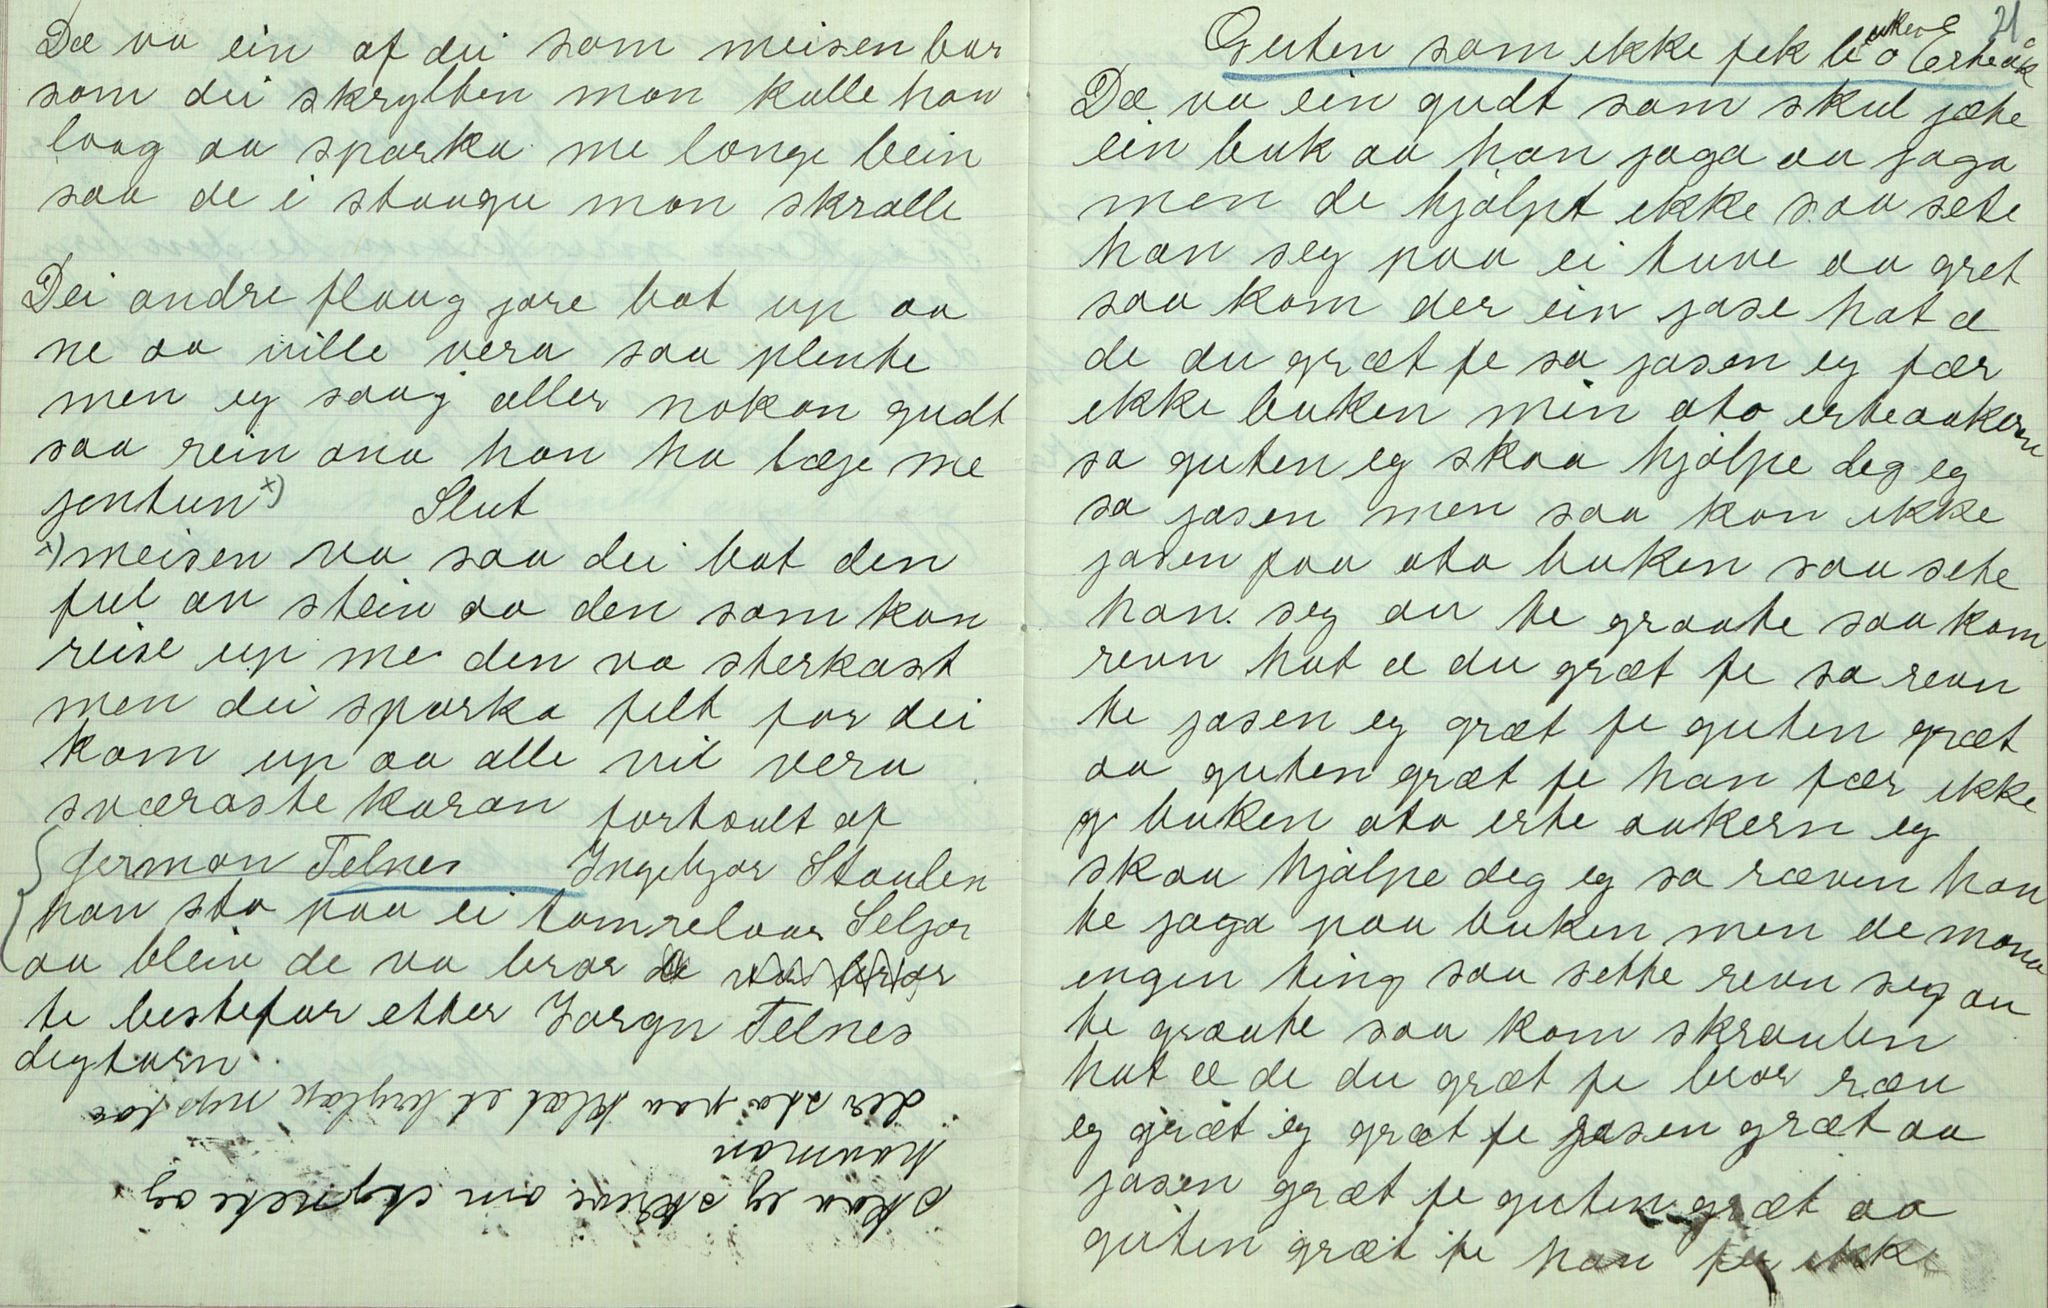 Dæ va ein af dei som meisen bar
som dei skrylten mon kalle han
laag aa sparka me lange bein
saa de i staaqu mon skralle
Dei andre flaug jore bat up aa
ne aa ville vera saa plente
men eg saag aller nokon gudt
saa rein ana han ha læje me
jentun x) Slut
x) meisen va saa dei bat den
ful av stein aa den som kan
reise up me den va sterkast
men dei sparka felt for dei
kom up aa alle vil vera
sværaste karan fortault af
Germon Telnes Ingebjor Staulen
han sto paa ei tomrelaar Seljor
aa bleiv de va bror
te bestefar etter Jorgn Telnes
degtarn
der sto paa klæt et
haaman
skaa eg skrive om
21
Guten som ikke fek buken o Erteåk
Dæ va ein gudt som skul jæte
ein buk aa han jaga aa jaga
men de hjalpt ikke saa sete
han seg paa ei tuve aa gret
saa kom der ein jase hat æ
de du græt fe sa jasen eg fær
ikke buken min ato erteaakeren
sa guten eg skaa hjalpe deg eg
sa jasen men saa kon ikke
jasen faa ato buken saa sete
han seg au te graate saa kom
revn hat æ du græt fe sa revn
te jasen eg græt fe guten græt
aa guten græt fe han fær ikke
buken ato erte aakern eg
skaa hjalpe deg eg sa ræven han
te jaga paa buken men de mona
engen ting saa sette revn seg au
te graate saa kom skrauten
hat æ de du græt fe bror ræv
eg græt eg græt fe jasen græt aa
jasen græt fe guten græt aa
guten græt fe han fær ikke